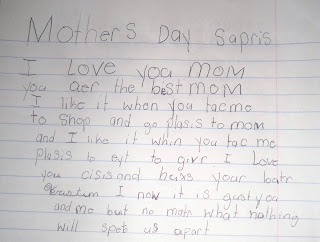 Mothers Day Sapris
I Love you MOM
you aer the best MOM
I like it when you tac me
to Shop and go plasis to mom
and I like it whin you tac me
plasis to eyt to givr I Love
you cisis and haxs your batr
I now it is gust you
and me but no math what nalhing
will spet us apart